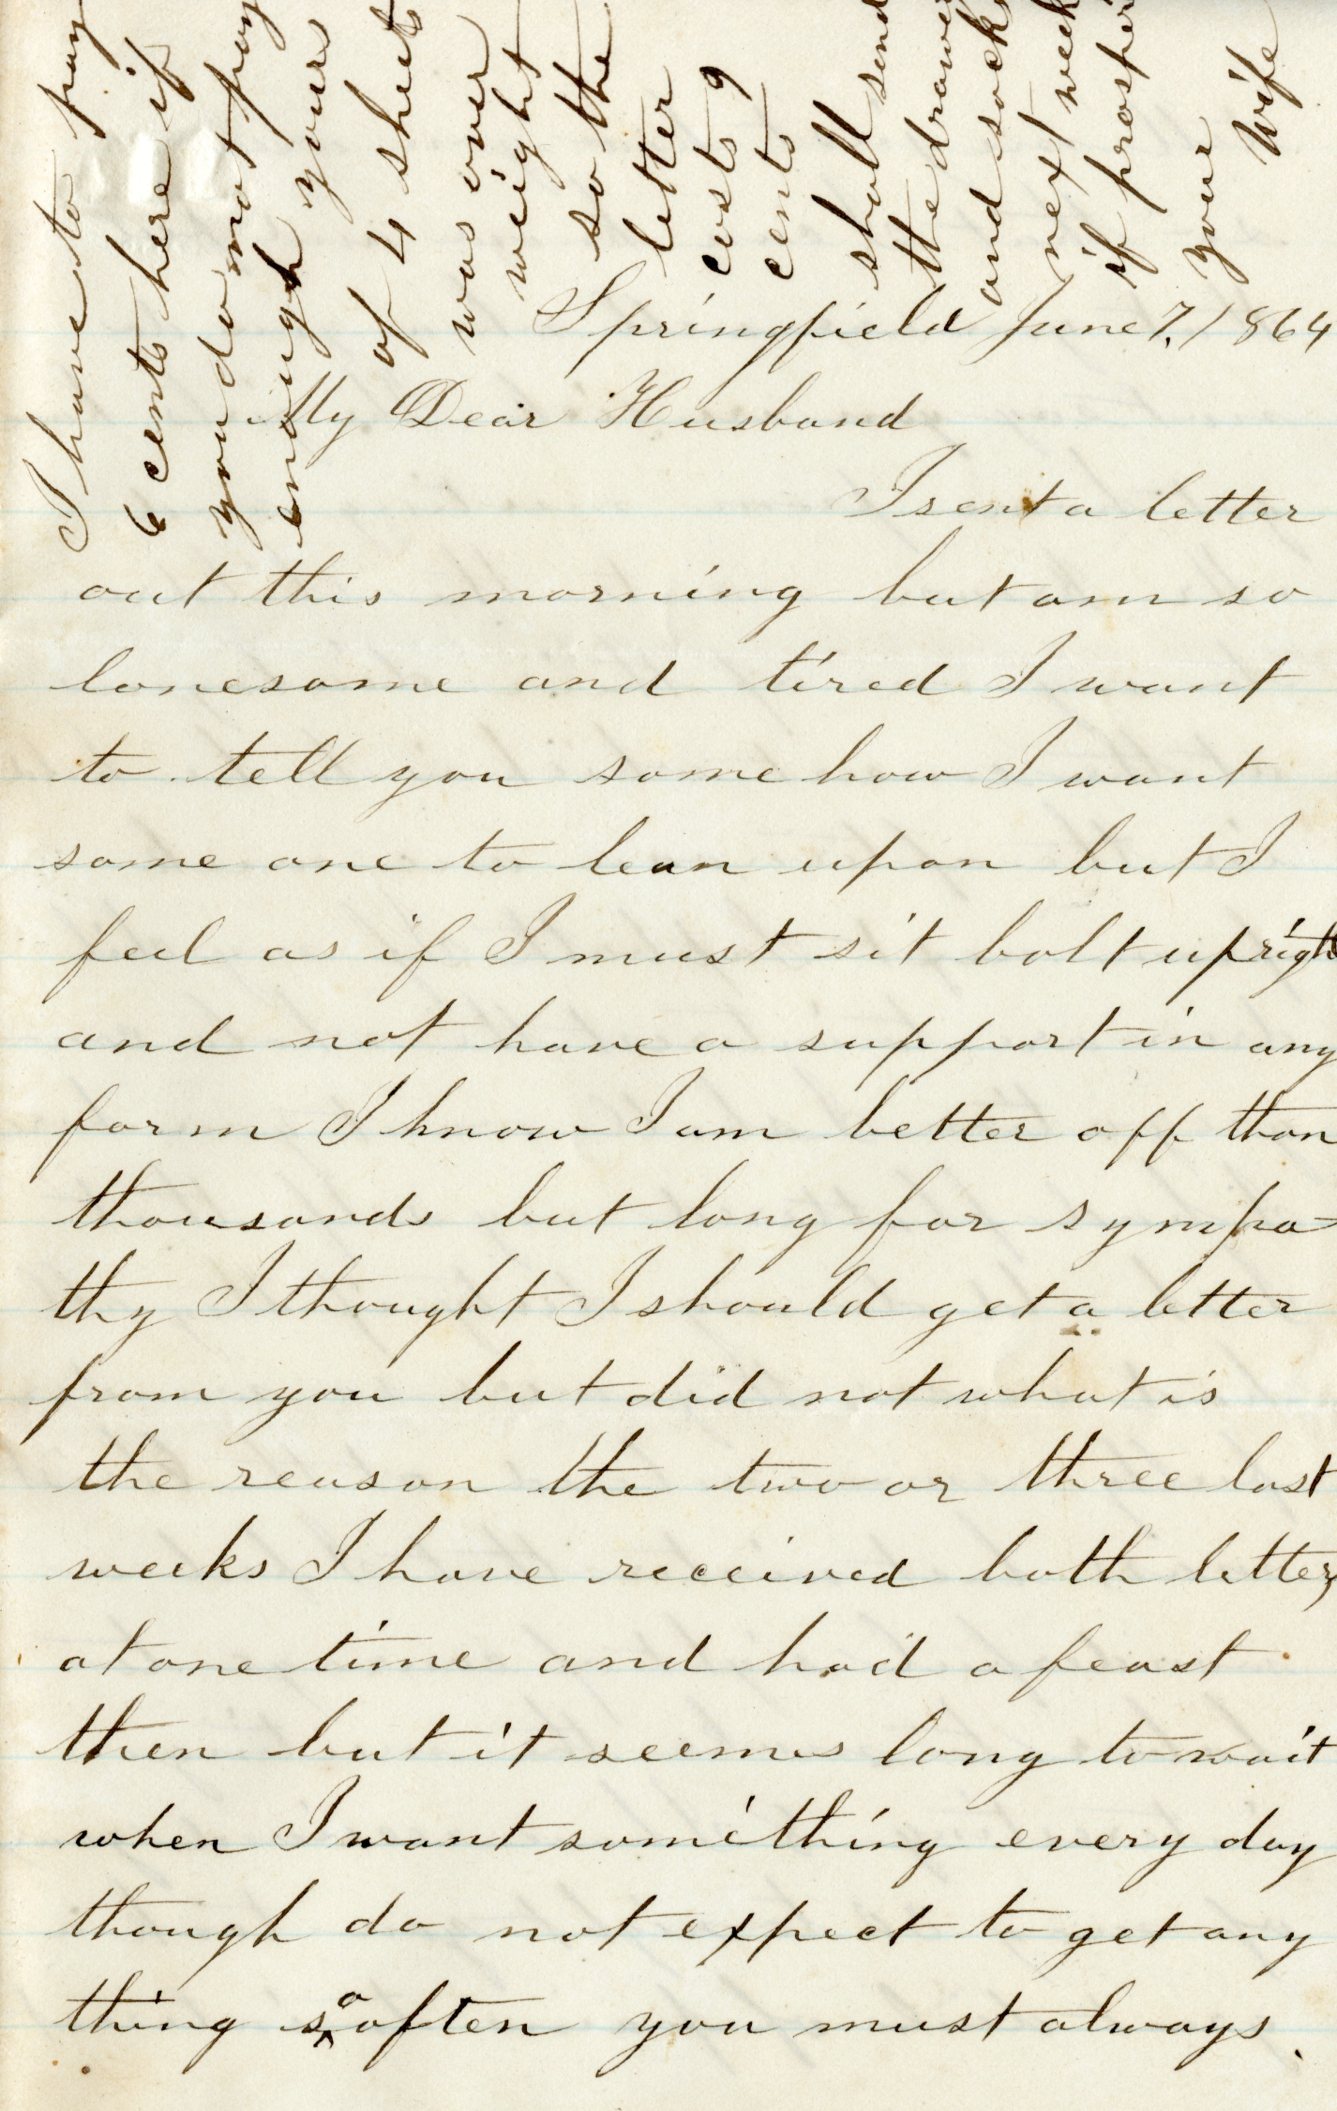 Springfield June 7. / 1864
My Dear Husband
I sent a letter
out this morning but am so
lonesome and tired I want
to tell you some how I want
some one to lean upon but I
feel as if I must sit bolt upright
and not have a support in any
form I know I am better off than
thousands but long for sympa-
thy I thought I should get a letter
from you but did not what is
the reason the two or three last
weeks I have received both letters
at one time and had a feast
then but it seems long to wait
when I want something every day
though do not expect to get any
thing so often you must always
I have to pay
6 cents here if
you do not pay
enough yours
of 4 sheets
was over
weight
so the
letter
costs 9
cents
shall send
the drawers
and socks
next week
if prosper
your
Wife